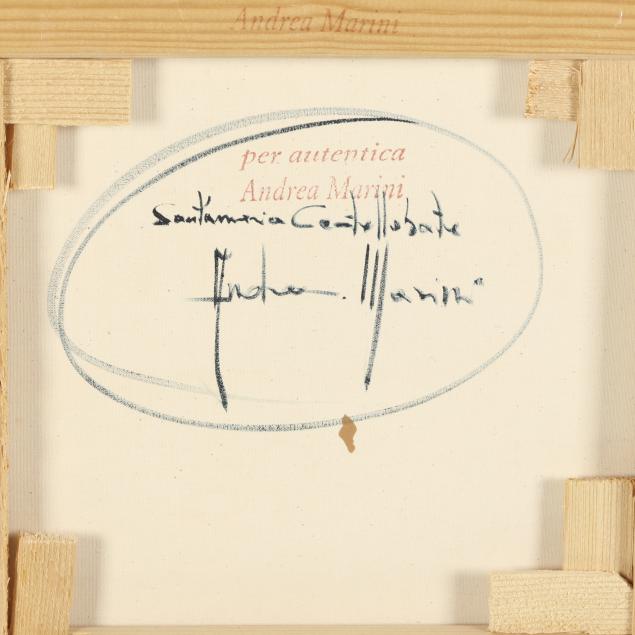 Andrea Marini
per autentica
Andrea Marini
Andrea Marini